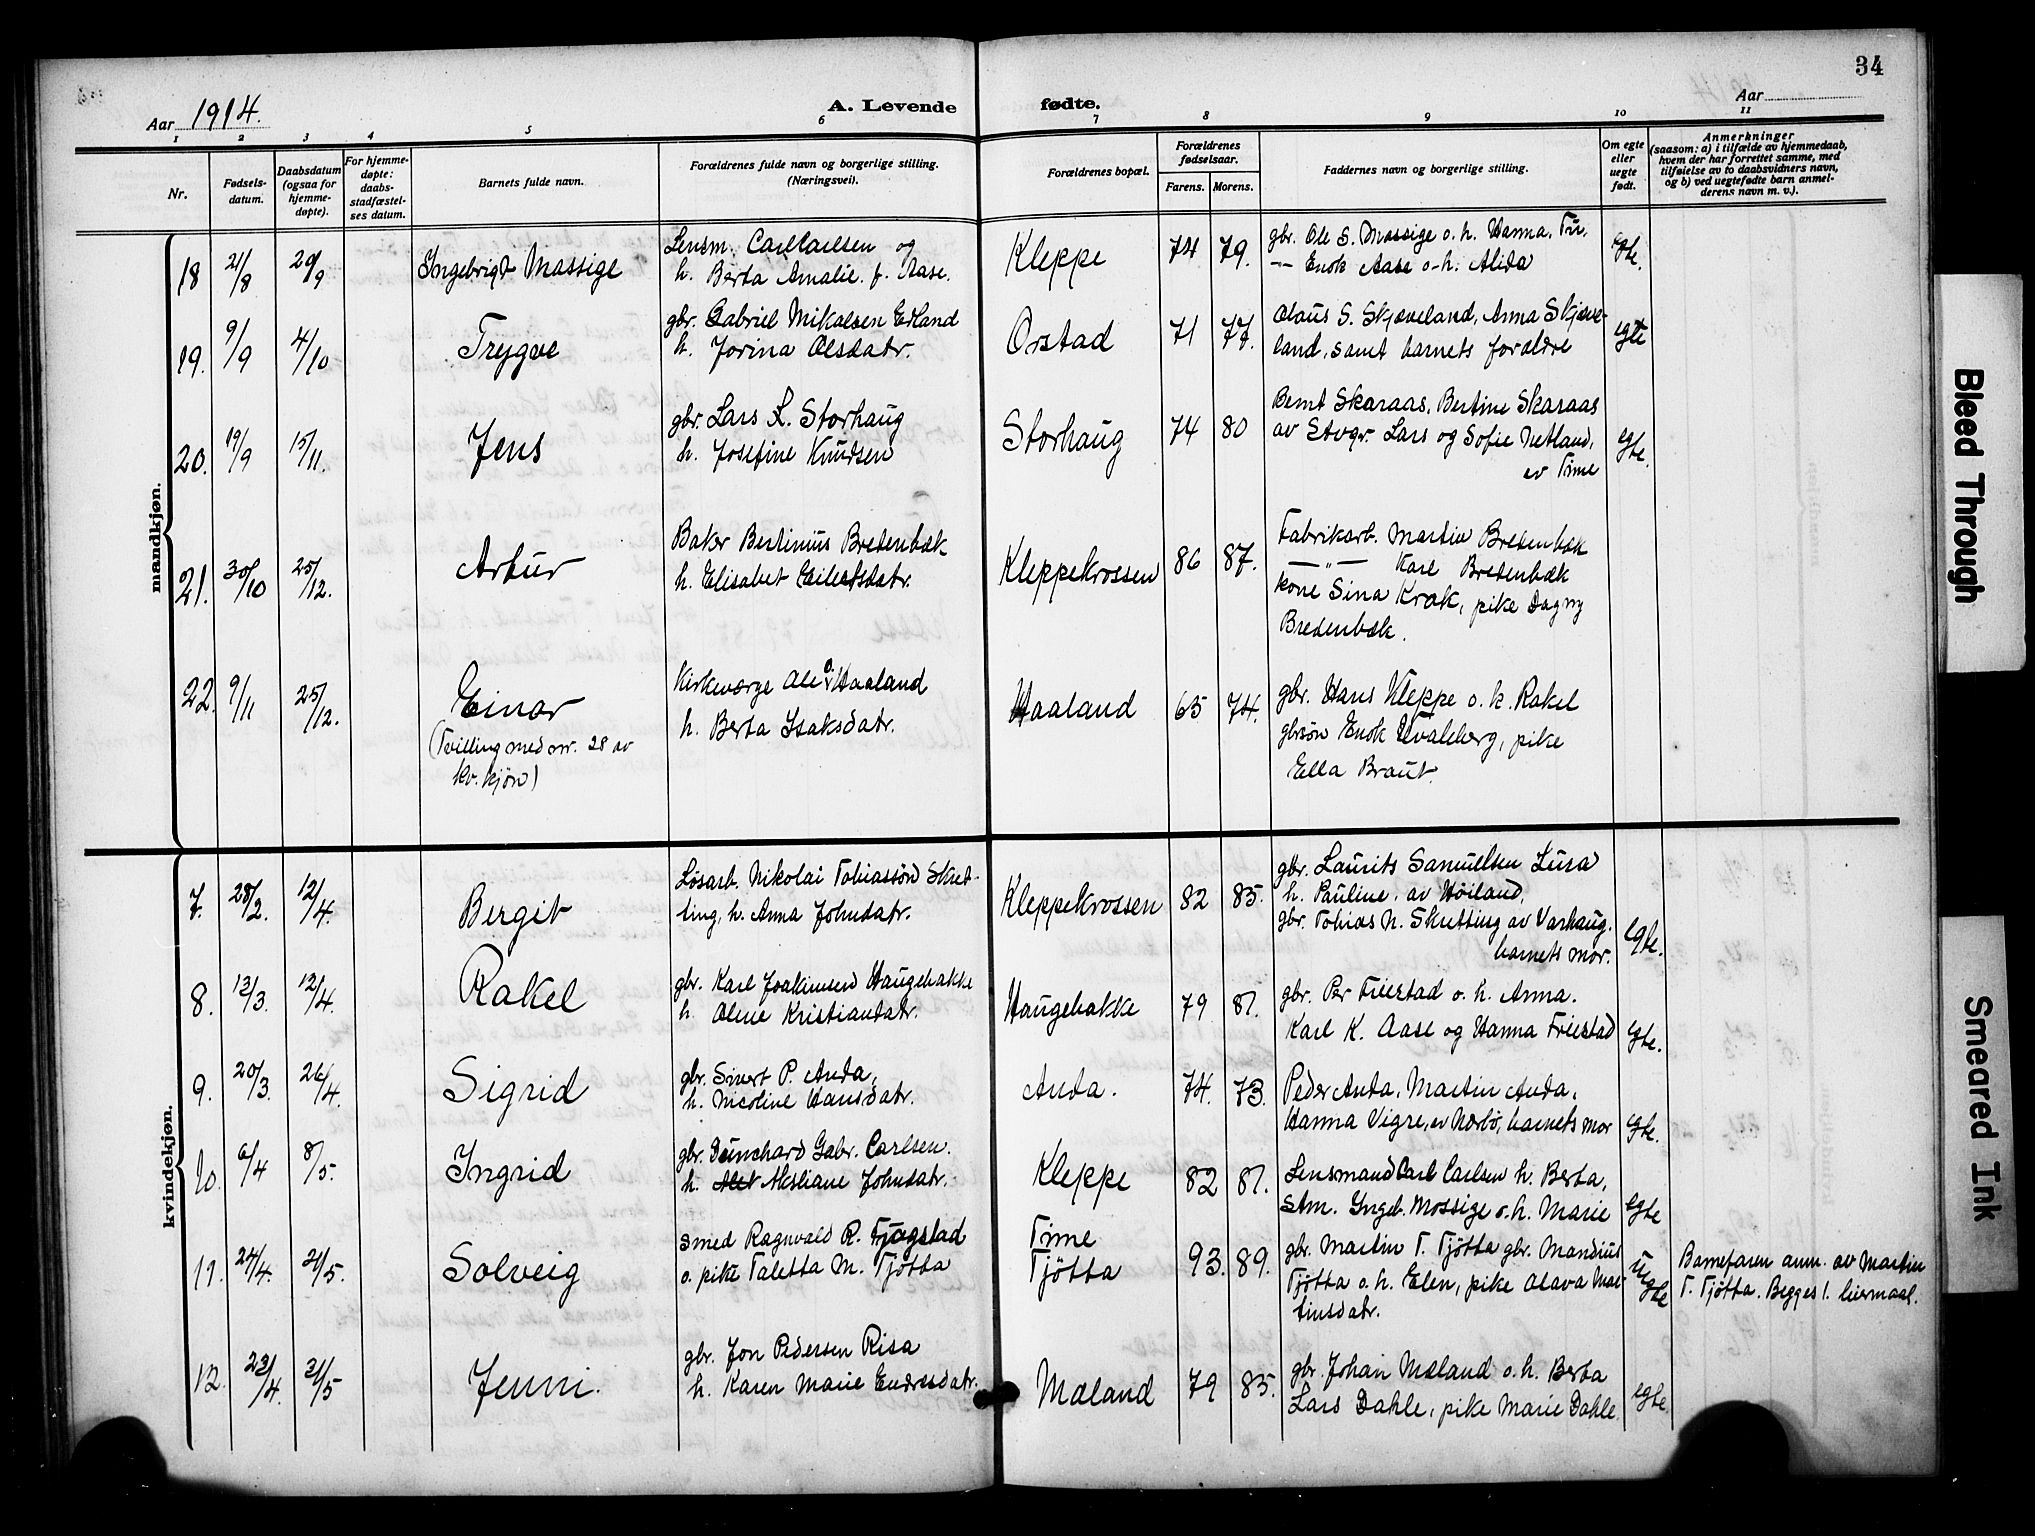 34
Aar 1914.
A. Levende fødte.
Aar
1 2 3 4 5 6 7 8 9 10 11
Nr.
Fødsels-
datum.
Daabsdatum
(ogsaa for
hjemme-
døpte).
For hjemme-
døpte:
daabs-
stadfæstel-
ses datum.
Barnets fulde navn.
Forældrenes fulde navn og borgerlige stilling.
(Næringsvei).
Forældrenes bopæl.
Forældrenes
fødselsaar.
Farens. Morens.
Faddernes navn og borgerlige stilling.
Om egte
eller
uegte
født.
Anmerkninger
(saasom: a) i tilfælde av hjemmedaab,
hvem der har forrettet samme, med
tilføielse av to daabsvidners navn,
og b) ved uegtefødte barn anmel-
derens navn m. v.).
mandkjøn.
18 21/8 20/9 Ingebrigt Massige
Lensm. Carl Carlsen og
h. Berta Amalie f. Aase.
Kleppe 74 79.
gbr. Ole S. Massige o. h. Hanna,
-"- Enok Aase o. h. Alida
Egte.
19. 9/9 4/10 Trygve
gbr. Gabriel Mikalsen Erland
h. Jorina Olsdatr.
Orstad 71 77.
Olaus S. Skjæveland, Anna Skjæve-
land, samt barnets forældre
egte
20. 19/9 15/11. Jens
gbr. Lars L. Storhaug
h. Josefine Knudsen
Storhaug 74 80
Bernt Skaraas, Bertine Skaraas
av Stvgr. Lars og Sofie Netland,
av Time
Egte.
21. 30/10 25/12. Artur
Baker Bertinius Bredenbæk
h. Elisabet Eilertsdatr.
Kleppekrossen 86 87.
Fabrikarb. Martin Bredenbæk
—"— Karl Bredenbæk
kone Sina Krak, pike Dagny
Bredenbæk.
22. 9/11 25/12. Einar
(Tvilling med nr. 28 av
kv. kjøn)
Kirkeværge Ole O. Haaland
h. Berta Isaksdatr.
Haaland 65 74.
gbr. Hans Kleppe o. h. Rakel
gbrsøn Enok Tvaleberg, pike
Ella Braut.
kvindekjøn.
7. 28/2. 12/4. Bergit
Løsarb. Nikolai Tobiassøn Skret-
ting, h. Anna Johnsdatr.
Kleppekrossen 82 85.
gbr. Laurits Samuelsen Lura
h. Pauline, av Høiland,
gbr. Tobias N. Skretting av Varhaug.
barnets mor.
Egte.
8. 13/3. 12/4. Rakel
gbr. Karl Joakimsen Haugebakke
h. Oline Kristiansdatr.
Haugebakke 79 81.
gbr. Per Friestad o. h. Anna.
Karl K. Aase og Hanna Friestad
Egte.
9. 20/3. 26/4. Sigrid
gbr. Sivert P. Anda,
h. Nicoline Hansdatr.
Anda. 74. 73.
Peder Anda, Martin Anda,
Hanna Vigre, av Nærbø, barnets mor
Egte.
10. 6/4 8/5. Ingrid
gbr. Gabr. Carlsen.
h. Aksliane Johnsdatr.
Kleppe 82 81.
Lensmand Carl Carlsen h. Berta,
Stm. Ingeb. Mossige o. h. Marie
Egte
11. 24/4. 21/5. Solveig
Smed Ragnvald R. Tjøgstad
o. pike Taletta M. Tjøtta
Time
Tjøtta 93. 89.
gbr. Martin T. Tjøtta gbr. Mandius
Tjøtta o. h. Elen, pike Olava Mar-
tinsdatr.
Uegte
Barnefaren anm. av Martin
T. Tjøtta. Begges 1. leiermaal.
12. 23/4. 21/5 Jenni.
gbr. Jon Pedersen Risa
h. Karen Marie Endresdatr.
Mæland 79 85.
gbr. Johan Mæland o. h. Berta
Lars Dahle, pike Marie Dahle.
egte.
Bleed Through
Smeared Ink